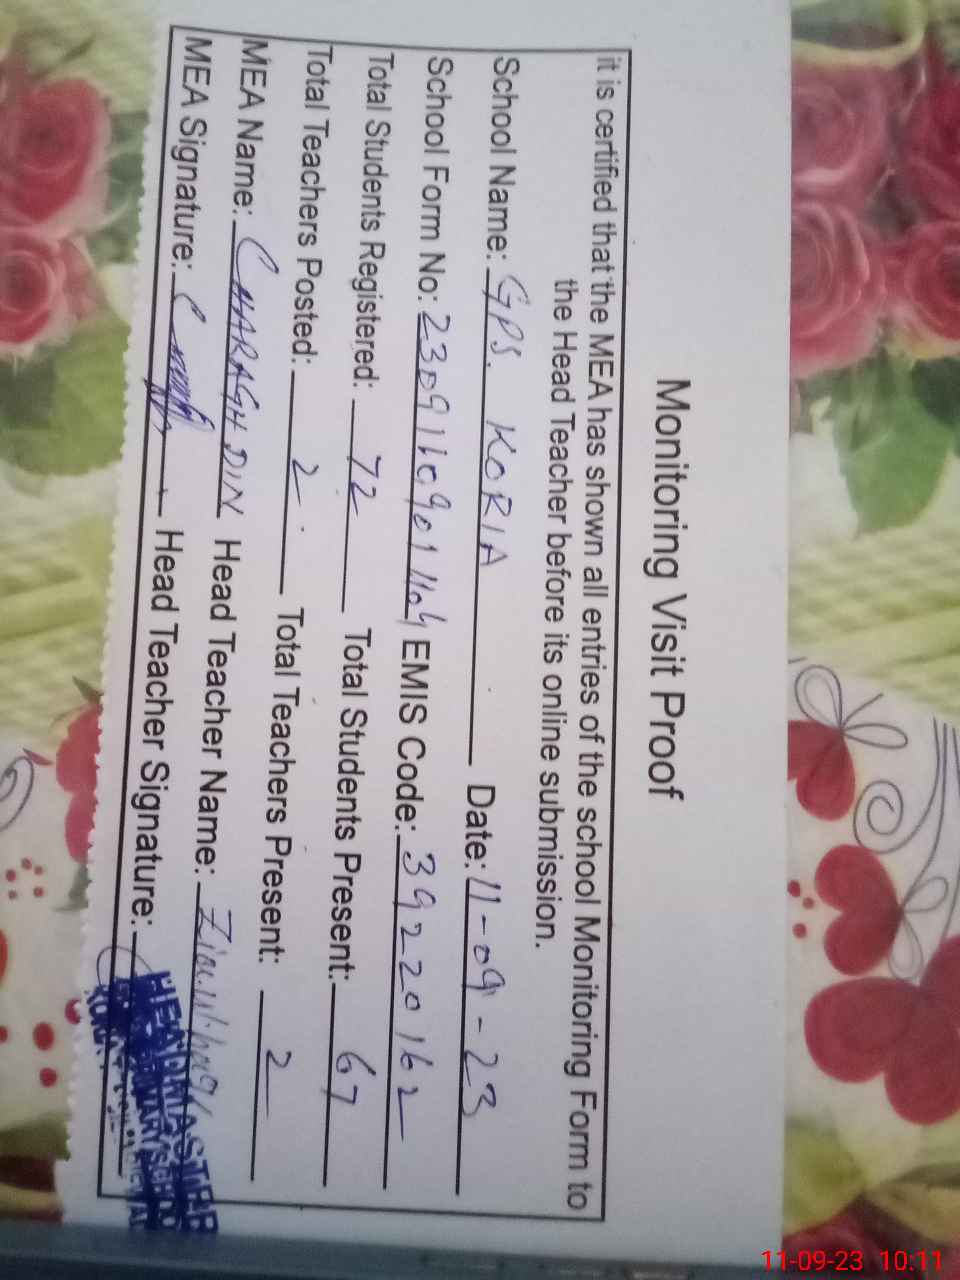 Monitoring Visit Proof
it is certified that the MEA has shown all entries of the school Monitoring Form to
the Head Teacher before its online submission.
School Name: GPS. KORIA Date: 11-09-23
School Form No: 23091109011104 EMIS Code: 39220162
Total Students Registered: 72 Total Students Present: 67
Total Teachers Posted: 2 Total Teachers Present: 2
MEA Name: CHARAGH DIN Head Teacher Name: Zia.ul.haq
MEA Signature: Head Teacher Signature:
HEADMASTER
11-09-23 10:11